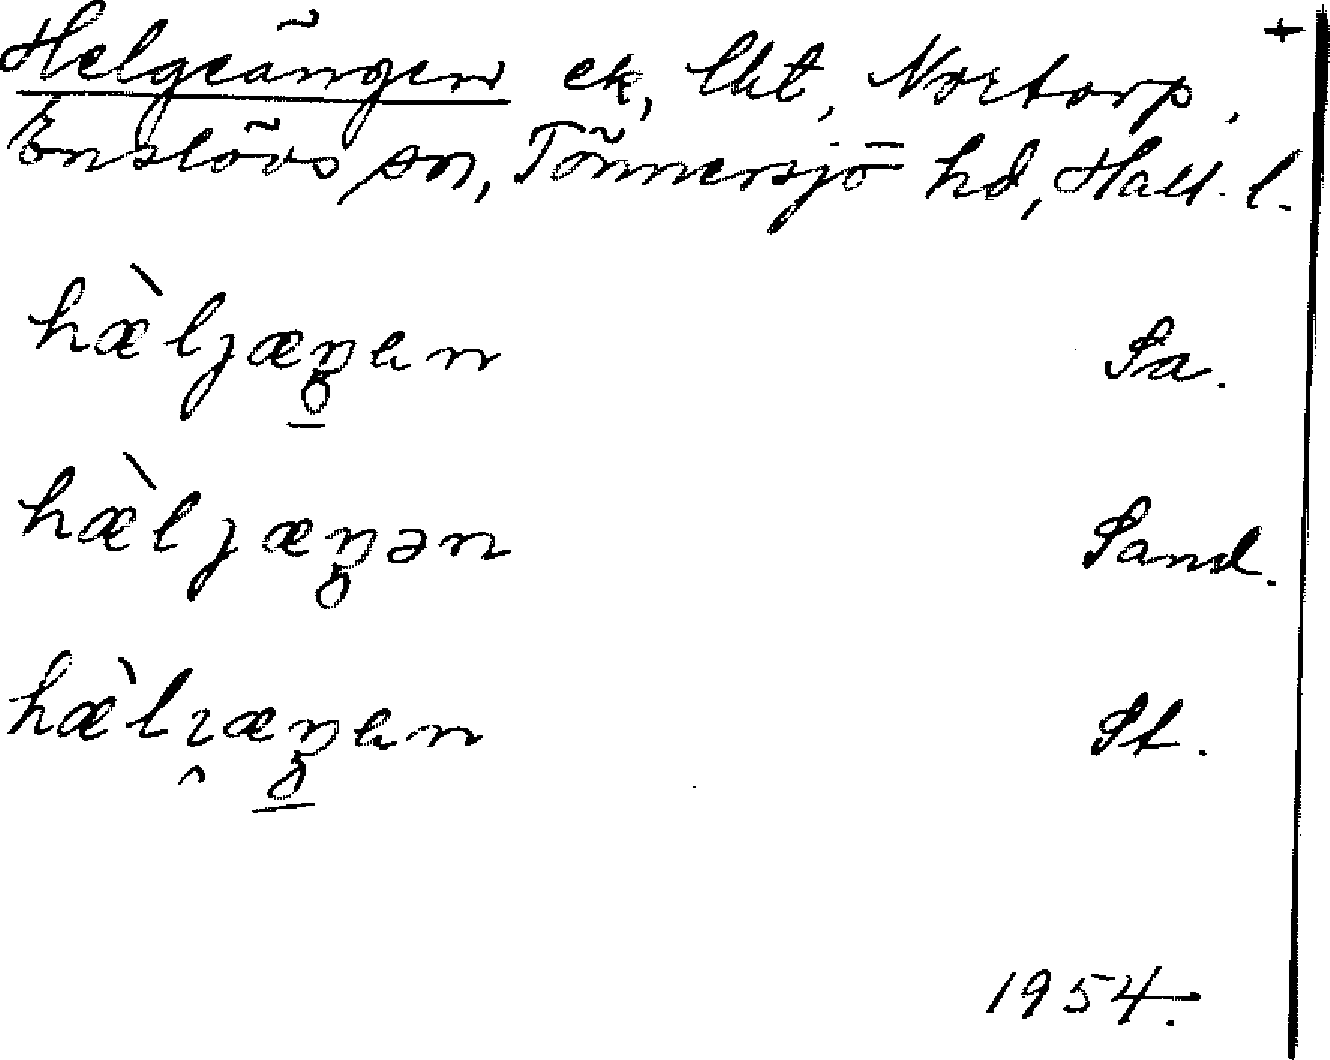 Helgeängen ek, lht, Nortorp, +
Enslövs sn, Tönnersjö hd, Hall. l.
hæ̀ljæŋen Sa.
hæ̀ljæŋən Sand.
hæ̀lıæŋen St.
1954.